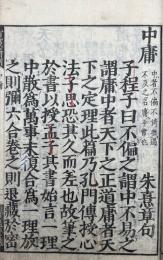 中庸
中者不偏不倚無過
不及之名庸平常也
朱熹章句
子程子曰不偏之謂中不易之
謂庸中者天下之正道庸者天
下之定理此篇乃孔門傳授心
法子思恐其久而差也故筆之
於書以授孟子其書始言一理
中散為萬事末復合為一理放
之則彌六合卷之則退藏於密